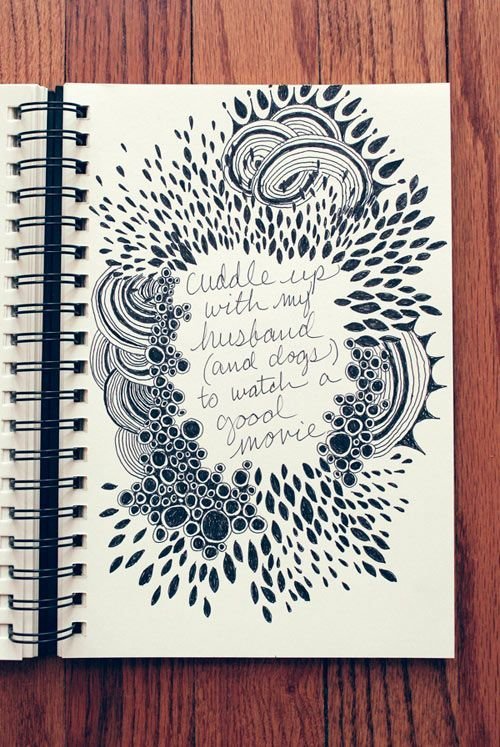 cuddle up
with my
husband
(and dogs)
to watch a
good
movie